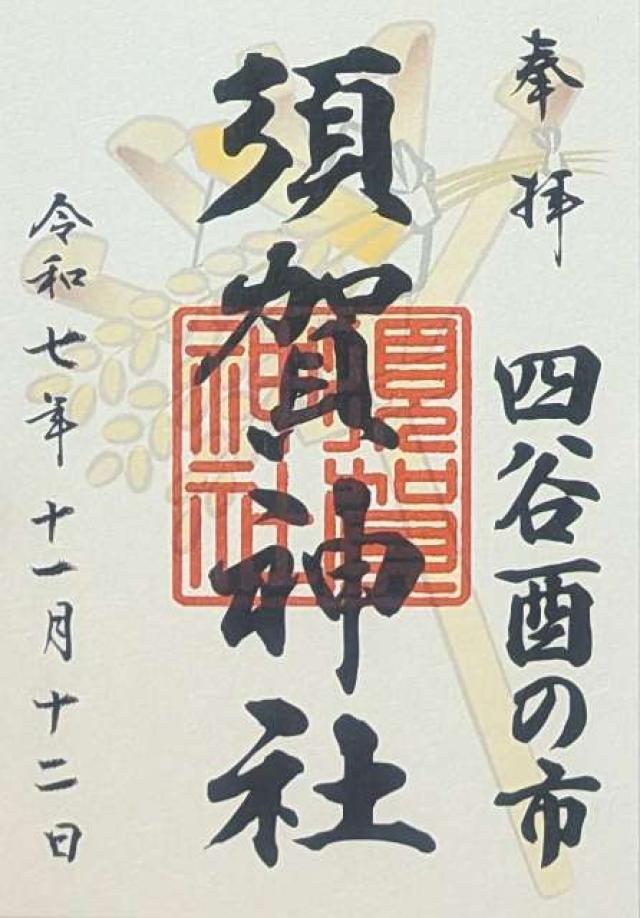 奉拝
四谷酉の市
須賀神社
令和七年十一月十二日